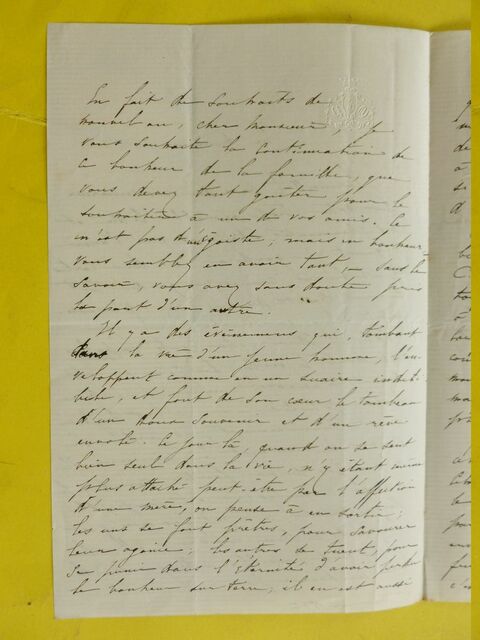 En fait de souhaits de
nouvel an, cher Monsieur, je
vous souhaite la continuation de
ce bonheur de la famille, que
vous devez tant goûter pour le
souhaiter à un de vos amis. Ce
n'est pas d'un égoïste; mais un bonheur
vous semblez en avoir tant, – sans le
savoir, vous avez sans doute pris
la part d'un autre.
Il y a des évènemens qui, tombant
dans la vie d'un jeune homme, l'en-
veloppent comme en un suaire
et font de son cœur le tombeau
d'un doux souvenir et d'un rêve
envolé. Ce jour là quand on se sent
bien seul dans la vie, n'y étant même
plus attaché peut-être par l'affection
d'une mère, on pense à en sortir;
les uns se font prêtres, pour savourer
leur agonie; les autres se tuent, pour
se punir dans l'éternité d'avoir perdu
le bonheur sur terre; il en est aussi